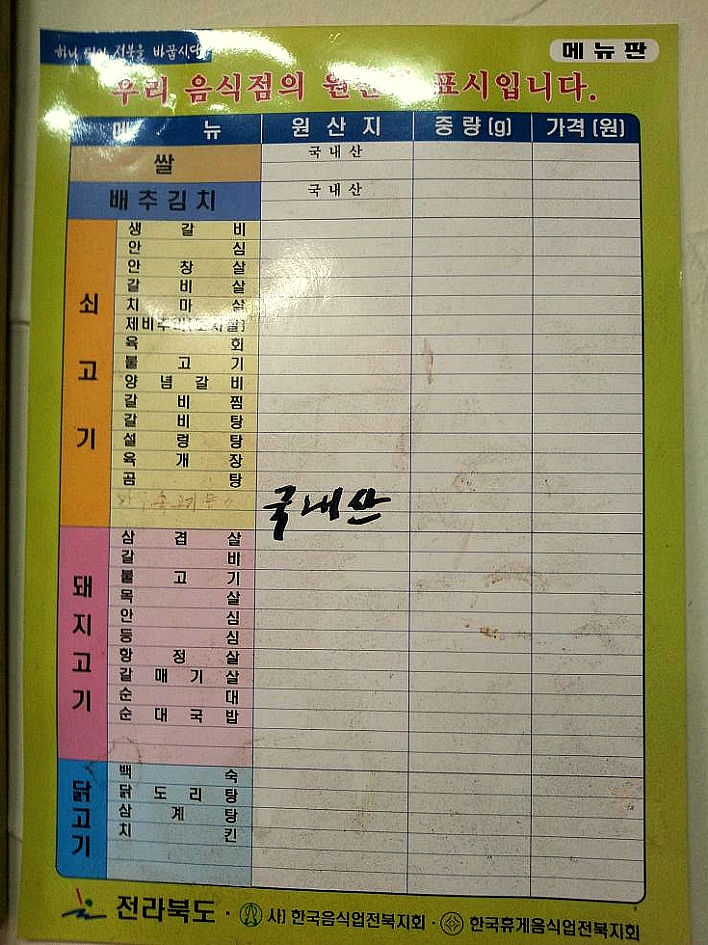 하나 되어 전북을 바꿉시다
메뉴판
우리 음식점의 표시입니다.
메 뉴 원 산 지 중 량 (g) 가격 (원)
쌀 국내산
배추김치 국내산
쇠고기
생 갈 비
안 심
안 창 살
갈 비 살
치 마 살
제비추리(토시살)
육 회
불 고 기
양 념 갈 비
갈 비 찜
갈 비 탕
설 렁 탕
육 개 장
곰 탕
국내산
돼지고기
삼 겹 살
갈 비
불 고 기
목 살
안 심
등 심
항 정 살
갈 매 기 살
순 대
순 대 국 밥
닭고기
백 숙
닭 도 리 탕
삼 계 탕
치 킨
전라북도 · 사) 한국음식업전북지회 · 한국휴게음식업전북지회